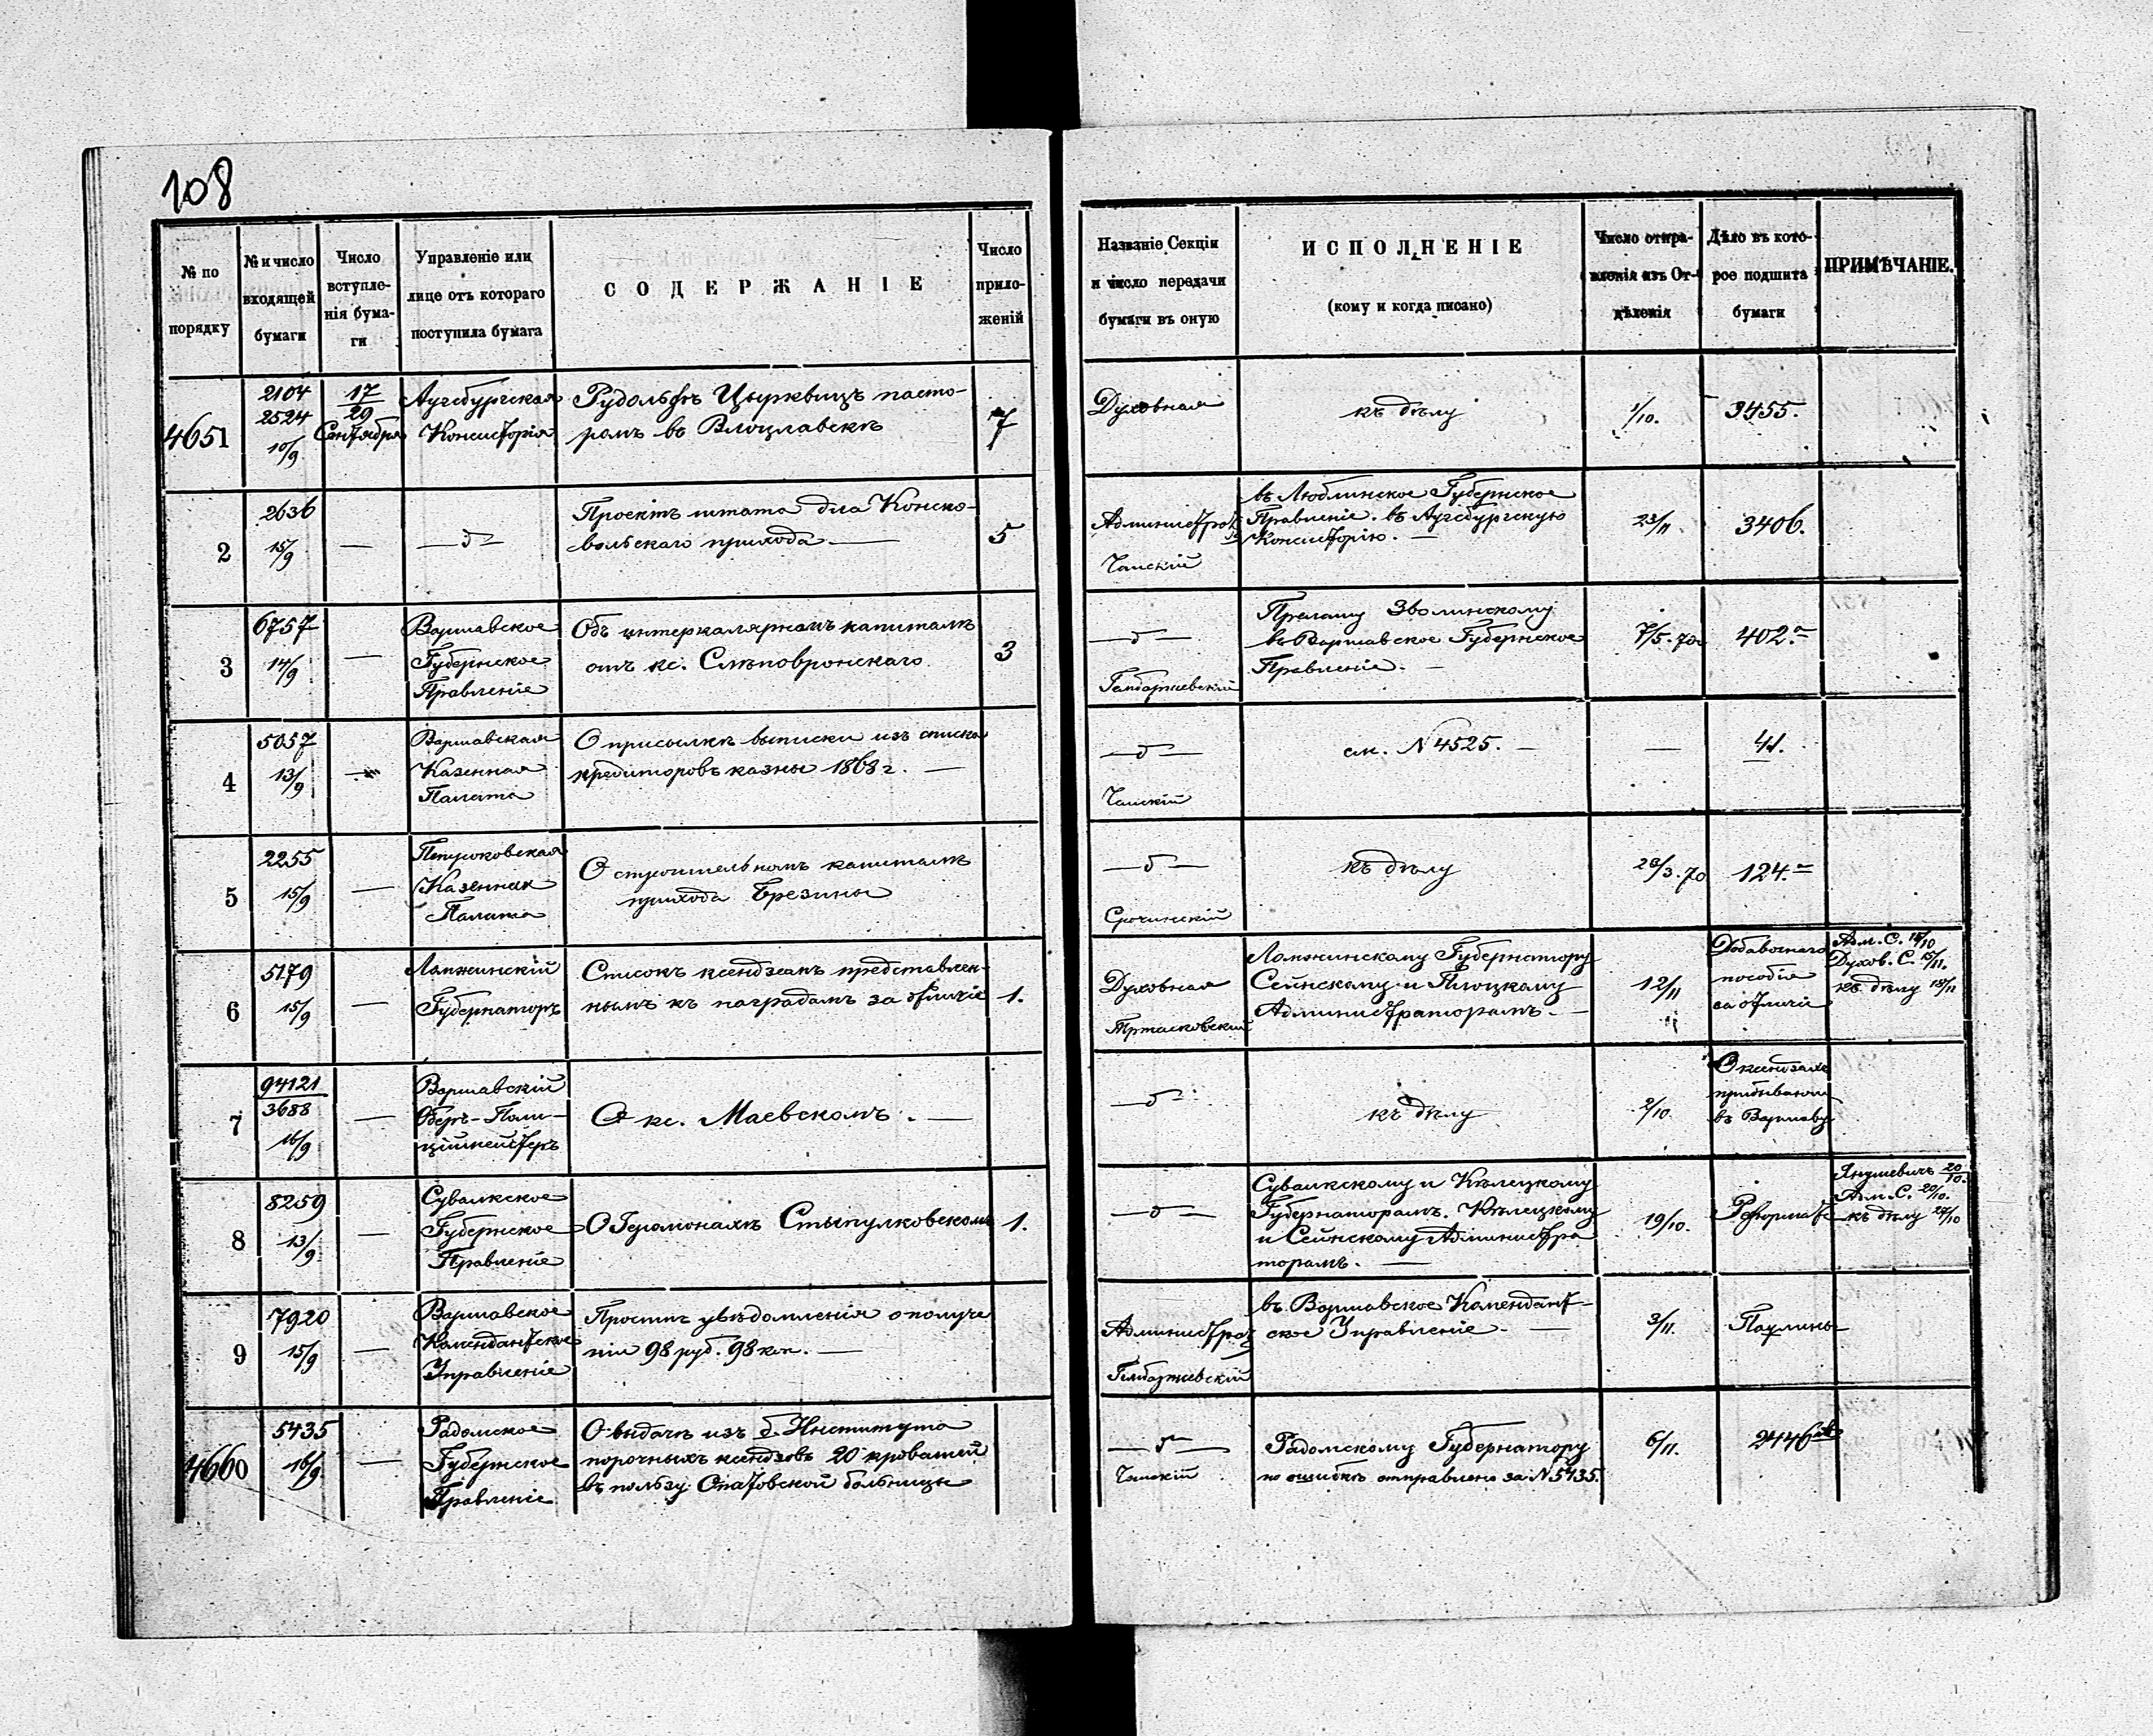 108
№ по
порядку
№ и число
входящей
бумаги
Число
вступле-
нія бума-
ги
Управленіе или
лице отъ котораго
поступила бумага
СОДЕРЖАНІЕ
Число
прило-
женій
Названіе Секціи
и число передачи
бумаги въ оную
ИСПОЛНЕНІЕ
(кому и когда писано)
Число отпра-
вленія изъ От-
дѣленія
Дѣло въ кото-
рое подшита
бумаги
ПРИМѢЧАНІЕ.
4651
2104
2524
10/9
17
29
Сентября
Аугсбургская
Консисторія
Рудольфъ Цырквицъ пасто-
ромъ въ Влоцлавскѣ
7
Духовная
къ дѣлу
1/10.
3455.
2
2636
15/9
—
—д—
Проектъ штата для Конско-
вольскаго прихода —
5
Администрац
Чамскій
въ Люблинское Губернское
Правленіе. въ Аугсбургскую
Консисторію. —
23/11
3406.
3
6757
14/9
—
Варшавское
Губернское
Правленіе
Объ интеркалярномъ капиталѣ
отъ кс. Слѣповронскаго.
3
—д—
Гембаржевскій
Прелату Зволинскому
въ Варшавское Губернское
Правленіе. —
7/5. 70
402.
4
5057
13/9
—
Варшавская
Казенная
Палата
О присылкѣ выписки изъ списка
кредиторовъ казны 1868 г. —
—д—
Чамскій
см. N 4525. —
—
41.
5
2255
15/9
—
Петроковская
Казенная
Палата
О строительномъ капиталѣ
прихода Брезины
—д—
Срочинскій
къ дѣлу
28/3. 70
124.
6
5179
15/9
—
Ломжинскій
Губернаторъ
Списокъ ксендзамъ представлен-
нымъ къ наградамъ за отличіе
1.
Духовная
Тржасковскій
Ломжинскому Губернатору
Сейнскому и Плоцкому
Администраторамъ. —
12/11
Добавочнаго
пособія
за отличіе
Адм. С. 15/10
Духов. С. 15/11.
къ дѣлу 18/11
7
94121
3688
16/9
—
Варшавскій
Оберъ-Поли-
цiймейстеръ
О кс. Маевскомъ. —
—д—
къ дѣлу
2/10.
О ксендзахъ
прибывающ
въ Варшаву
8
8259
13/9
—
Сувалкское
Губернское
Правленіе
О Іеромонахѣ Стыпулковскомъ
1.
—д—
Сувалкскому и Кѣлецкому
Губернаторамъ. Кѣлецкому
и Сейнскому Администра
торамъ. —
19/10.
Реформат
Янушевичъ 20/10.
Адм. С. 20/10.
къ дѣлу 27/10
9
7920
15/9
—
Варшавское
Комендантское
Управленіе
Проситъ увѣдомленія о получе
ніи 98 руб. 98 коп. —
Администрац
Гембаржевскій
въ Варшавское Комендант-
ское Управленіе. —
3/11.
Паулины
4660
5435
16/9
—
Радомское
Губернское
Правленіе
О выдачѣ изъ б. Института
порочныхъ ксендзовъ 20 кроватей
въ пользу Опатовской больницы
—д—
Чамскій
Радомскому Губернатору
по ошибкѣ отправлено за N 5435.
6/11.
2446